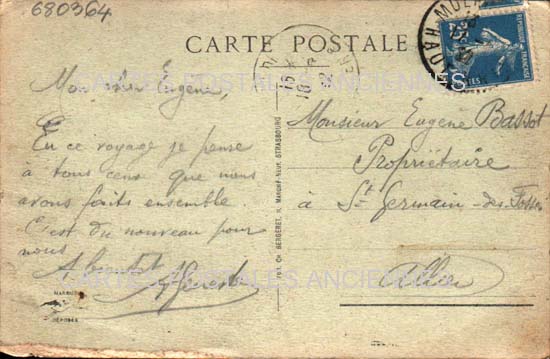 680364
CARTE POSTALE
CARTES POSTALES ANCIENNES
Mon cher Eugène,
En ce voyage je pense
à tous ceux que nous
avons faits ensemble.
C'est du nouveau pour
nous
A bientôt
Monsieur Eugène Bassot
Propriétaire
à St Germain-des-Fossés
Allier
CH. BERGERET, STRASBOURG
REPUBLIQUE FRANÇAISE
CARTES POSTALES ANCIENNES
DÉPOSÉE